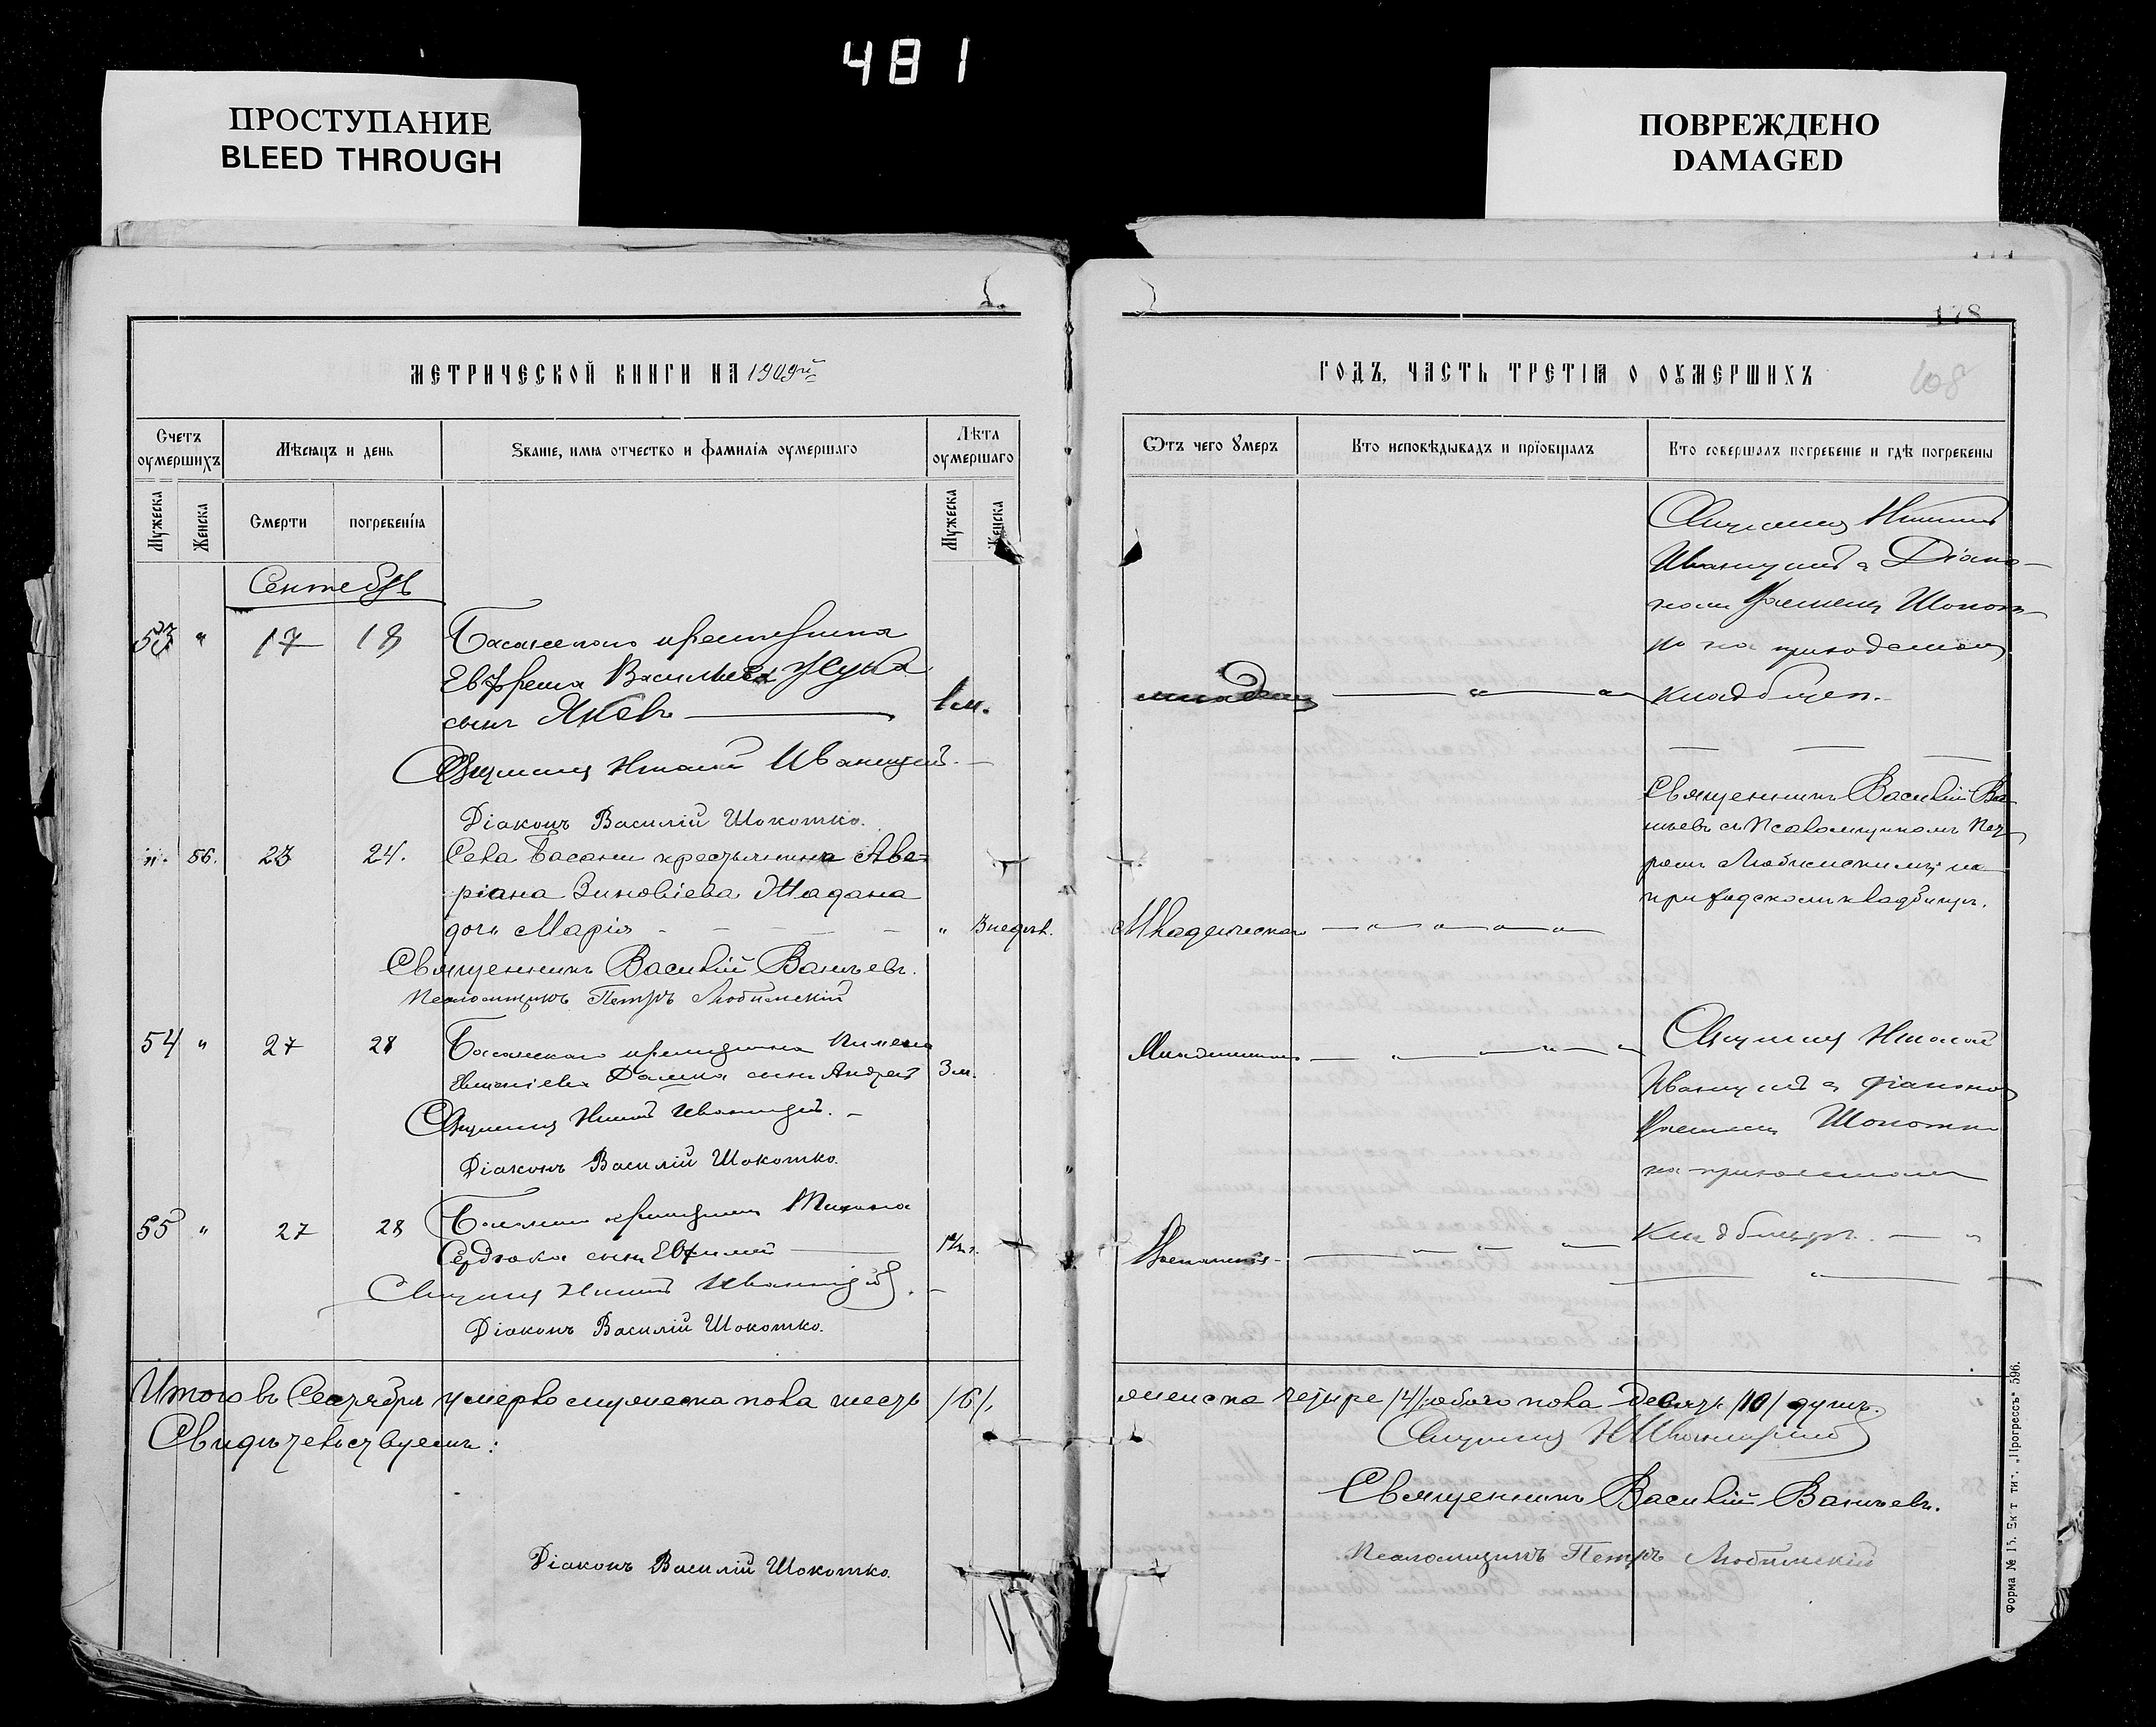 481
ПРОСТУПАНИЕ
BLEED THROUGH
ПОВРЕЖДЕНО
DAMAGED
178
108
МЕТРИЧЕСКОЙ КНИГИ НА 1909й
ГОДЪ, ЧАСТЬ ТРЕТІЯ О ОУМЕРШИХЪ
Счетъ оумершихъ
Мѣсяцъ и день
Званіе, имя отчество и фамилія оумершаго
Лѣта оумершаго
Отъ чего умеръ
Кто исповѣдывалъ и пріобщалъ
Кто совершалъ погребеніе и гдѣ погребены
Мужеска
Женска
Смерти
погребенія
Мужеска
Женска
Сентябрь
53 " 17 18
Басанскаго крестьянина
Евфрема Васильева Жука
сынъ Яковъ 1 м.
Священникъ Николай Иваницкій
Діаконъ Василій Шокотко.
Священникъ Николай
Иваницкій съ Діако-
номъ Василіемъ Шокот-
ко на приходскомъ
кладбищѣ.
". 56. 23 24.
Села Басани крестьянина Аве-
ріана Зиновіева Жадана
дочь Марія " 3 недѣл.
Священникъ Василій Ваньевъ.
Псаломщикъ Петръ Любимскій
Младенческая
Священникъ Василій Ва-
ньевъ съ Псаломщикомъ Пет-
ромъ Любимскимъ на
приходскомъ кладбищѣ.
54 " 27 28
Басанскаго крестьянина Пимена
сынъ Андрей 3 м.
Священникъ Николай Иваницкій.
Діаконъ Василій Шокотко.
Священникъ Николай
Иваницкій съ діакономъ
Василіемъ Шокотко
на приходскомъ
кладбищѣ.
55 " 27 28
Сердюка сынъ Евфимій
Священникъ Николай Иваницкій.
Діаконъ Василій Шокотко.
Итого въ Сентябрѣ умерло мужеска пола шесть /6/,
женска четыре /4/, обоего пола десять /10/ душъ.
Свидѣтельствуемъ:
Священникъ Н Иваницкій
Священникъ Василій Ваньевъ.
Діаконъ Василій Шокотко.
Псаломщикъ Петръ Любимскій
Форма № 15. Ек-т тип. „Прогрессъ" 596.